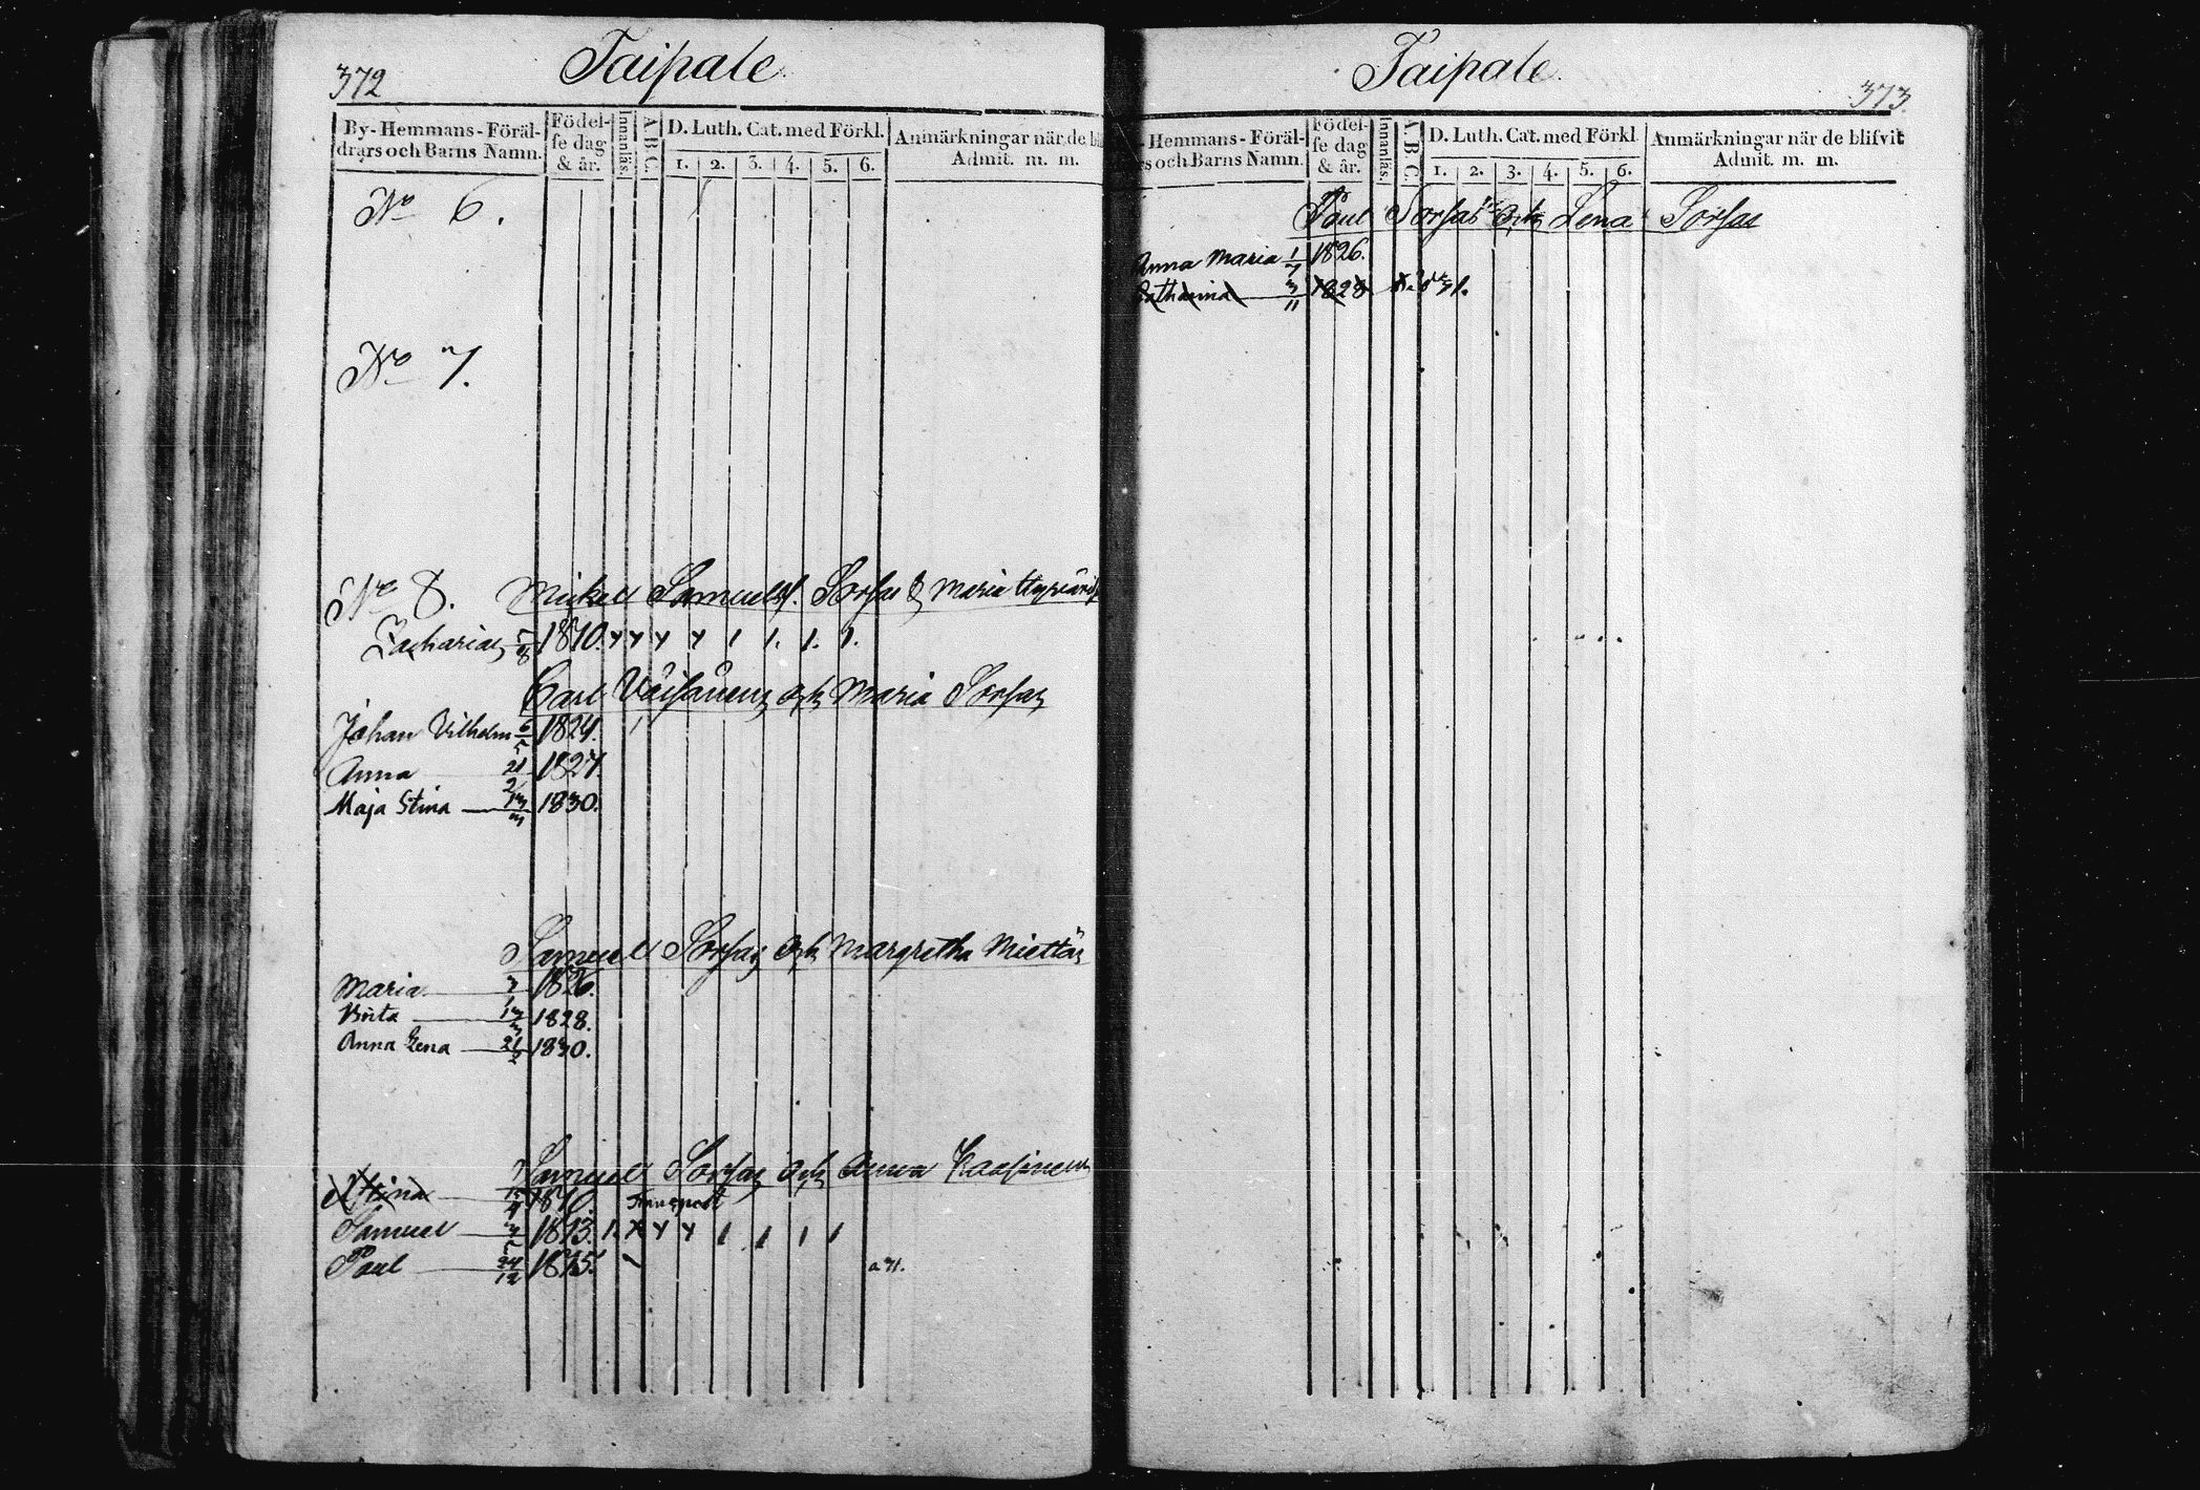 372
Taipale
By-Hemmans-Föräl-
drars och Barns Namn.
Födel-
se dag
& år.
Innanläs.
A.B.C.
D. Luth. Cat. med Förkl.
1. 2. 3. 4. 5. 6.
Anmärkningar när de bl
Admit. m. m.
No 6.
No 7.
No 8. Mickel Samuels. Sorsa & Maria
Zacharias 5/8 1810.
Carl Väisänen och Maria Sorsa
Johan Vilhelm 6/5 1824.
Anna 21/2 1827.
Maja Stina 13/3 1830.
Samuel Sorsa och Margretha Miettin
Maria 1826.
Brita 13/3 1828.
Anna Lena 1830.
Samuel Sorsa och Anna Kaasinen
Stina 1810. Transport
Samuel 1813.
Paul 24/12 1815.
Taipale.
373
Hemmans-Föräl-
s och Barns Namn.
Födel-
se dag
& år.
Innanläs.
A.B.C.
D. Luth. Cat. med Förkl.
1. 2. 3. 4. 5. 6.
Anmärkningar när de blifvit
Admit. m. m.
Paul Sorsa och Lena Sorsa
Anna Maria 1/7 1826.
Catharina 3/11 1828